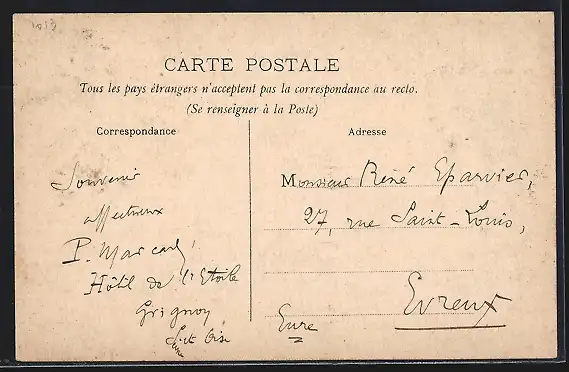 CARTE POSTALE
Tous les pays étrangers n'acceptent pas la correspondance au recto.
(Se renseigner à la Poste)
Correspondance
Adresse
Souvenir
affectueux
P.
Hôtel de l'Etoile
Grignon
S. et Oise
Monsieur René Eparvier,
27, rue Saint-Louis,
Evreux
Eure